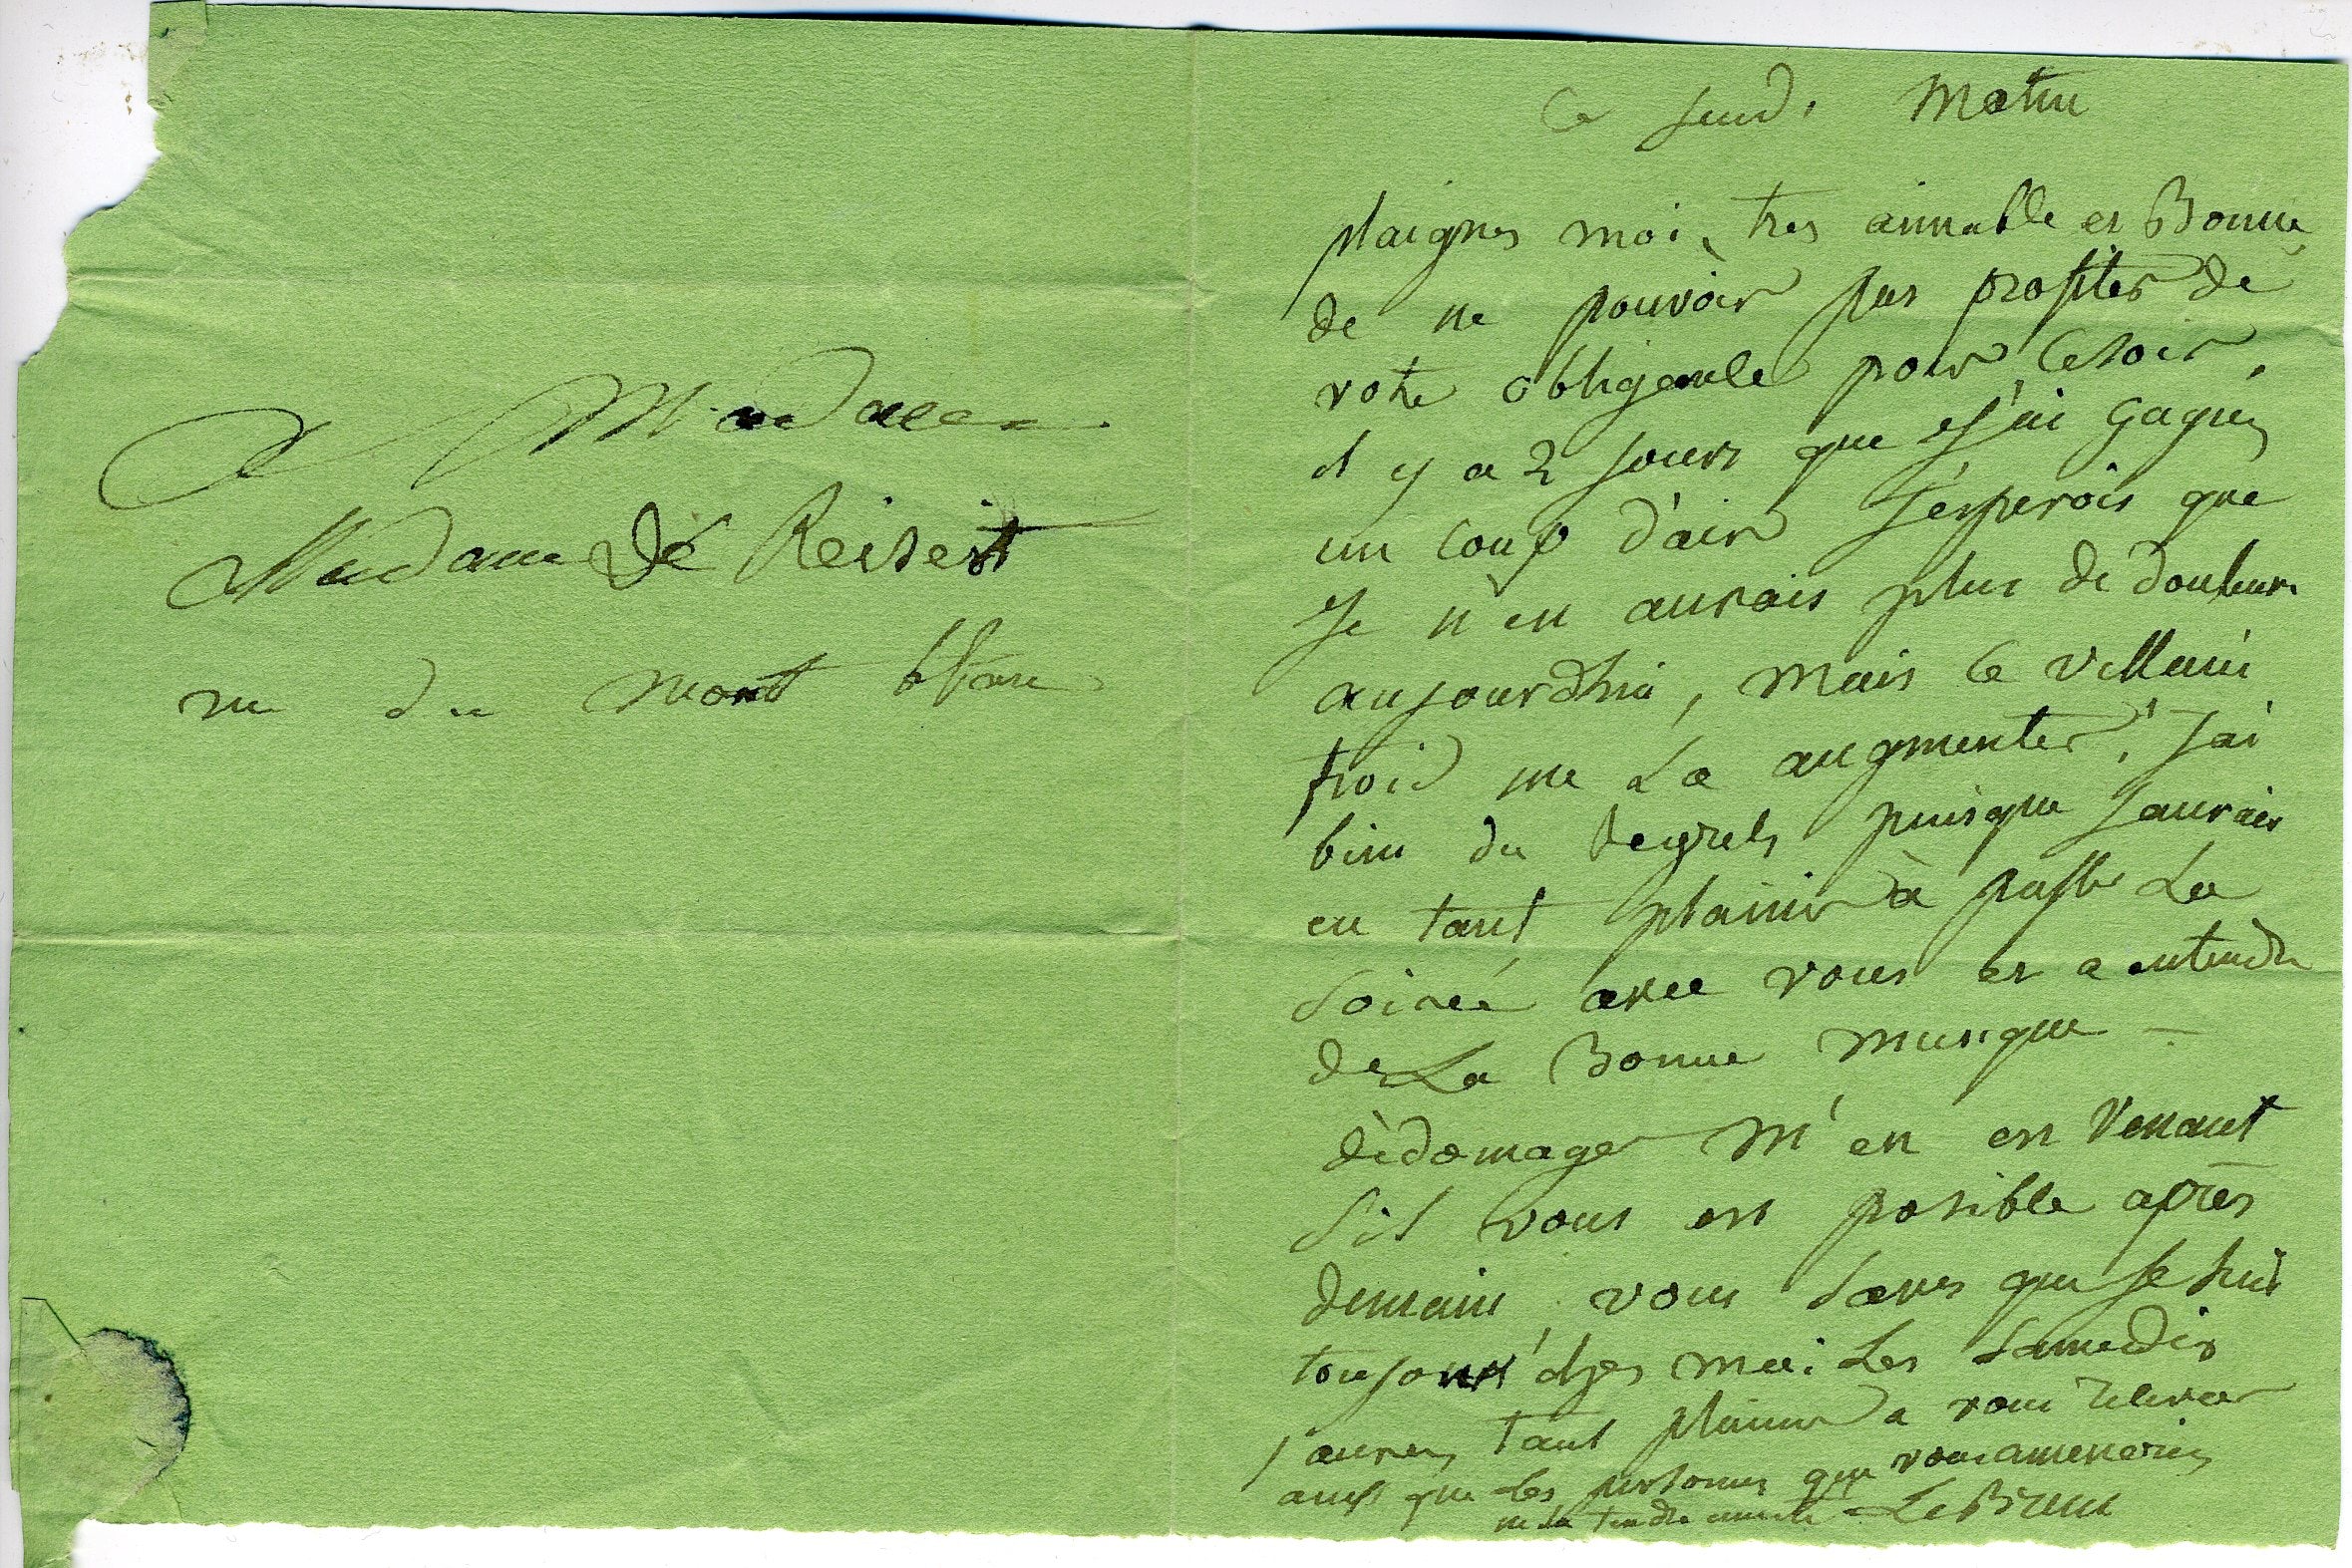 A Madame
Madame de Reiset
rue du mont blanc
Ce jeudi matin
plaignes moi, tres aimable et Bonne
de ne pouvoir pas profiter de
votre obligence pour ce soir,
il y a 2 jours que j'ai gagnez
un coup d'air j'esperois que
je n'en aurais plus de douleurs
aujourdhui, mais ce villain
froid me la augmenter, j'ai
bien du regrets puisque j'aurais
eu tant plaisir à passer la
soirée avec vous et a entendre
de la Bonne musique —
dèdomager m'en en venant
s'il vous est posible après
demain, vous saves que je suis
toujours chez moi les samedis
j'aurez tant plaisir a vous
ainsi que les personnes que vous ameneriez
tendre amitié = Le Brun